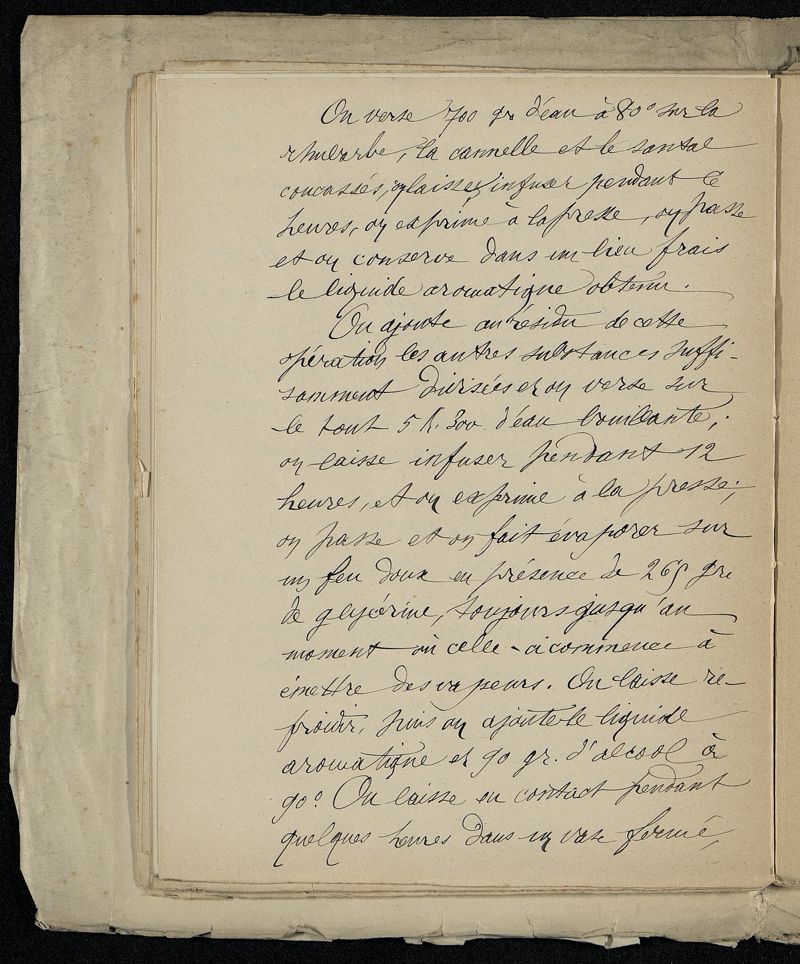 On verse 700 gr d'eau à 80° sur la
rhubarbe, la cannelle et le santal
concassés, on laisse infuser pendant 6
heures, on exprime à la presse, on passe
et on conserve dans un lieu frais
le liquide aromatique obtenu.
On ajoute au résidu de cette
opération les autres substances suffi-
samment divisées et on verse sur
le tout 5 k. 300 d'eau bouillante;
on laisse infuser pendant 12
heures, et on exprime à la presse;
on passe et on fait évaporer sur
un feu doux en présence de 265 gr.
de glycérine, toujours jusqu'au
moment où celle-ci commence à
émettre des vapeurs. On laisse re-
froidir, puis on ajoute le liquide
aromatique et 90 gr. d'alcool à
90° On laisse en contact pendant
quelques heures dans un vase fermé,